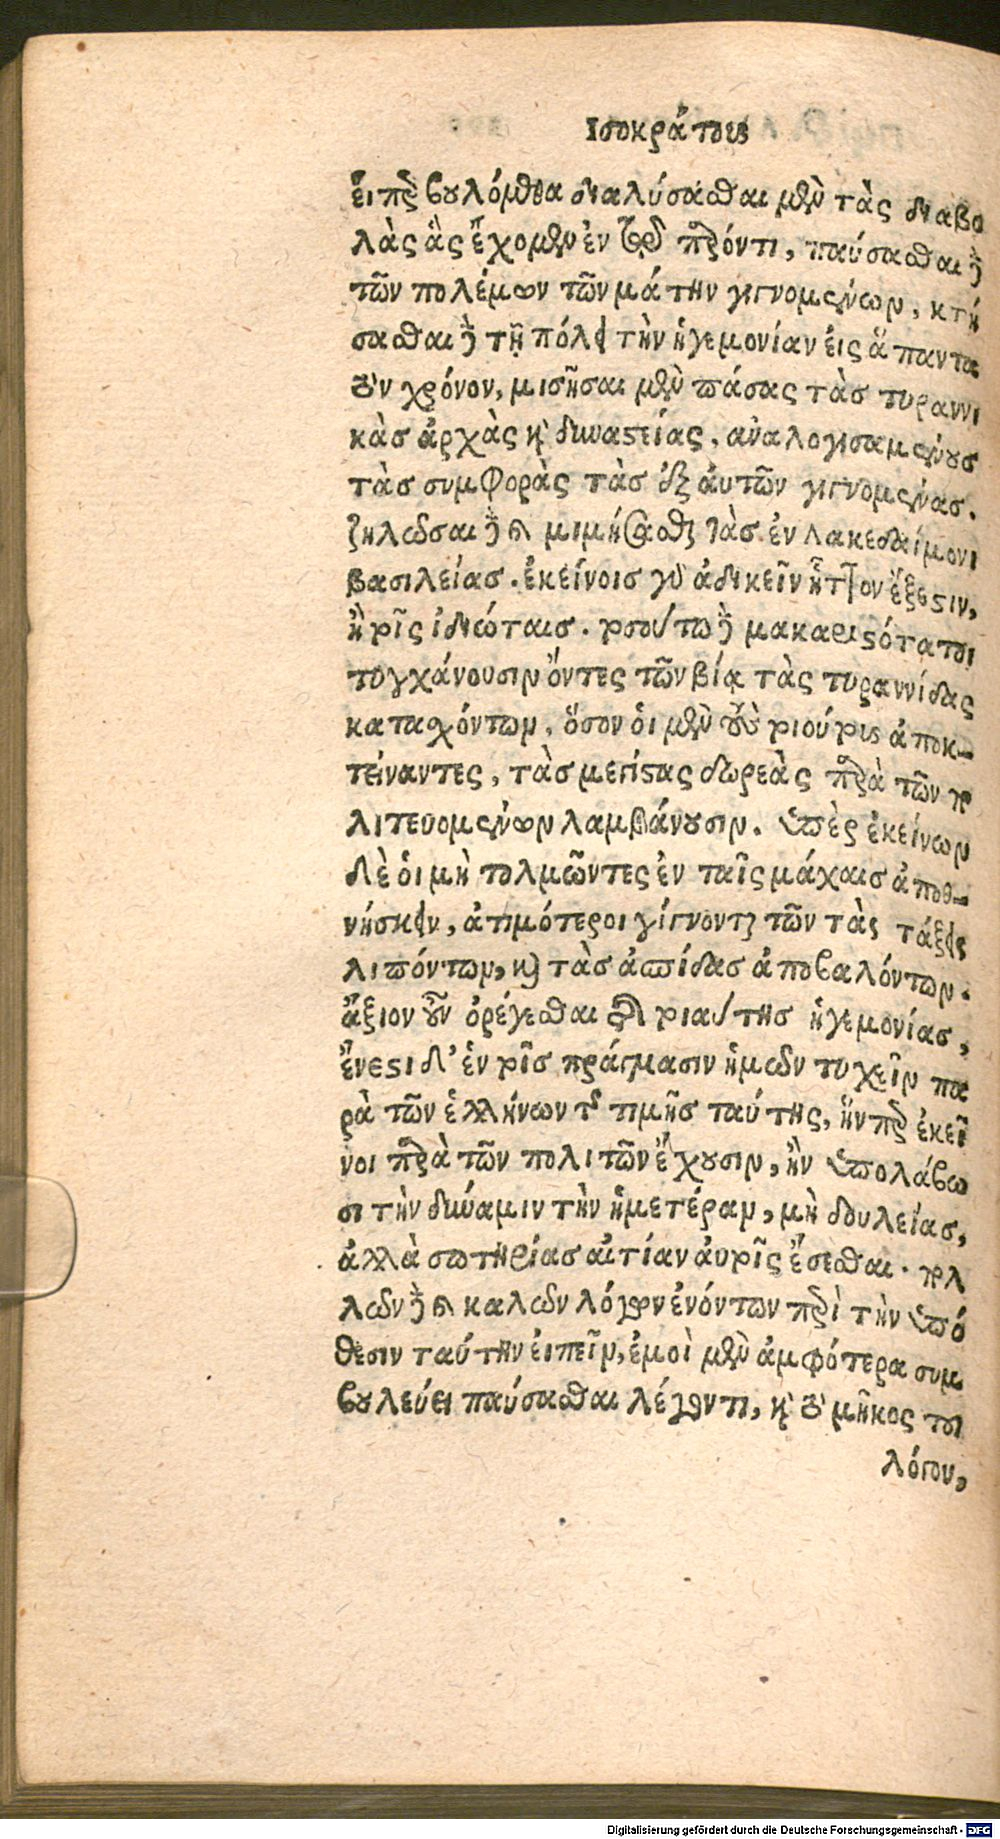 Ισοκράτους
εἴπερ βουλόμεθα διαλύσασθαι μὲν τὰς διαβο
λὰς ἃς ἔχομεν ἐν τῷ παρόντι, παύσασθαι δὲ
τῶν πολέμων τῶν μάτην γιγνομένων, κτή
σασθαι δὲ τῇ πόλει τὴν ἡγεμονίαν εἰς ἅπαντα
τὸν χρόνον, μισῆσαι μὲν πάσας τὰς τυραννι
κὰς ἀρχὰς καὶ δυναστείας, ἀναλογισαμένους
τὰς συμφορὰς τὰς ἐξ αὐτῶν γιγνομένας.
ζηλῶσαι δὲ καὶ μιμήσασθαι τὰς ἐν Λακεδαίμονι
βασιλείας. ἐκείνοις γὰρ ἀδικεῖν ἧττον ἔξεστιν,
ἢ τοῖς ἰδιώταις. τοσούτω δὲ μακαριστότατοι
τυγχάνουσιν ὄντες τῶν βίᾳ τὰς τυραννίδας
καταχόντων, ὅσον οἱ μὲν τοὺς τοιούτους ἀποκ-
τείναντες, τὰς μεγίστας δωρεὰς παρὰ τῶν πο
λιτευομένων λαμβάνουσιν. ὑπὲρ ἐκείνων
δὲ οἱ μὴ τολμῶντες ἐν ταῖς μάχαις ἀποθ-
νήσκειν, ἀτιμότεροι γίγνονται τῶν τὰς τάξεις
λιπόντων, καὶ τὰς ἀσπίδας ἀποβαλόντων.
ἄξιον οὖν ὀρέγεσθαι τῆς τοιαύτης ἡγεμονίας,
ἔνεστι δ' ἐν τοῖς πράγμασιν ἡμῶν τυχεῖν πα
ρὰ τῶν ἑλλήνων τῆς τιμῆς ταύτης, ἥνπερ ἐκεῖ
νοι παρὰ τῶν πολιτῶν ἔχουσιν, ἢν ὑπολάβω
σι τὴν δύναμιν τὴν ἡμετέραν, μὴ δουλείας,
ἀλλὰ σωτηρίας αἰτίαν αὐτοῖς ἔσεσθαι. πολ
λῶν δὲ καὶ καλῶν λόγων ἐνόντων περὶ τὴν ὑπό
θεσιν ταύτην εἰπεῖν, ἐμοὶ μὲν ἀμφότερα συμ
βουλεύει παύσασθαι λέγοντι, καὶ τὸ μῆκος τοῦ
λόγου,
Digitalisierung gefördert durch die Deutsche Forschungsgemeinschaft - DFG